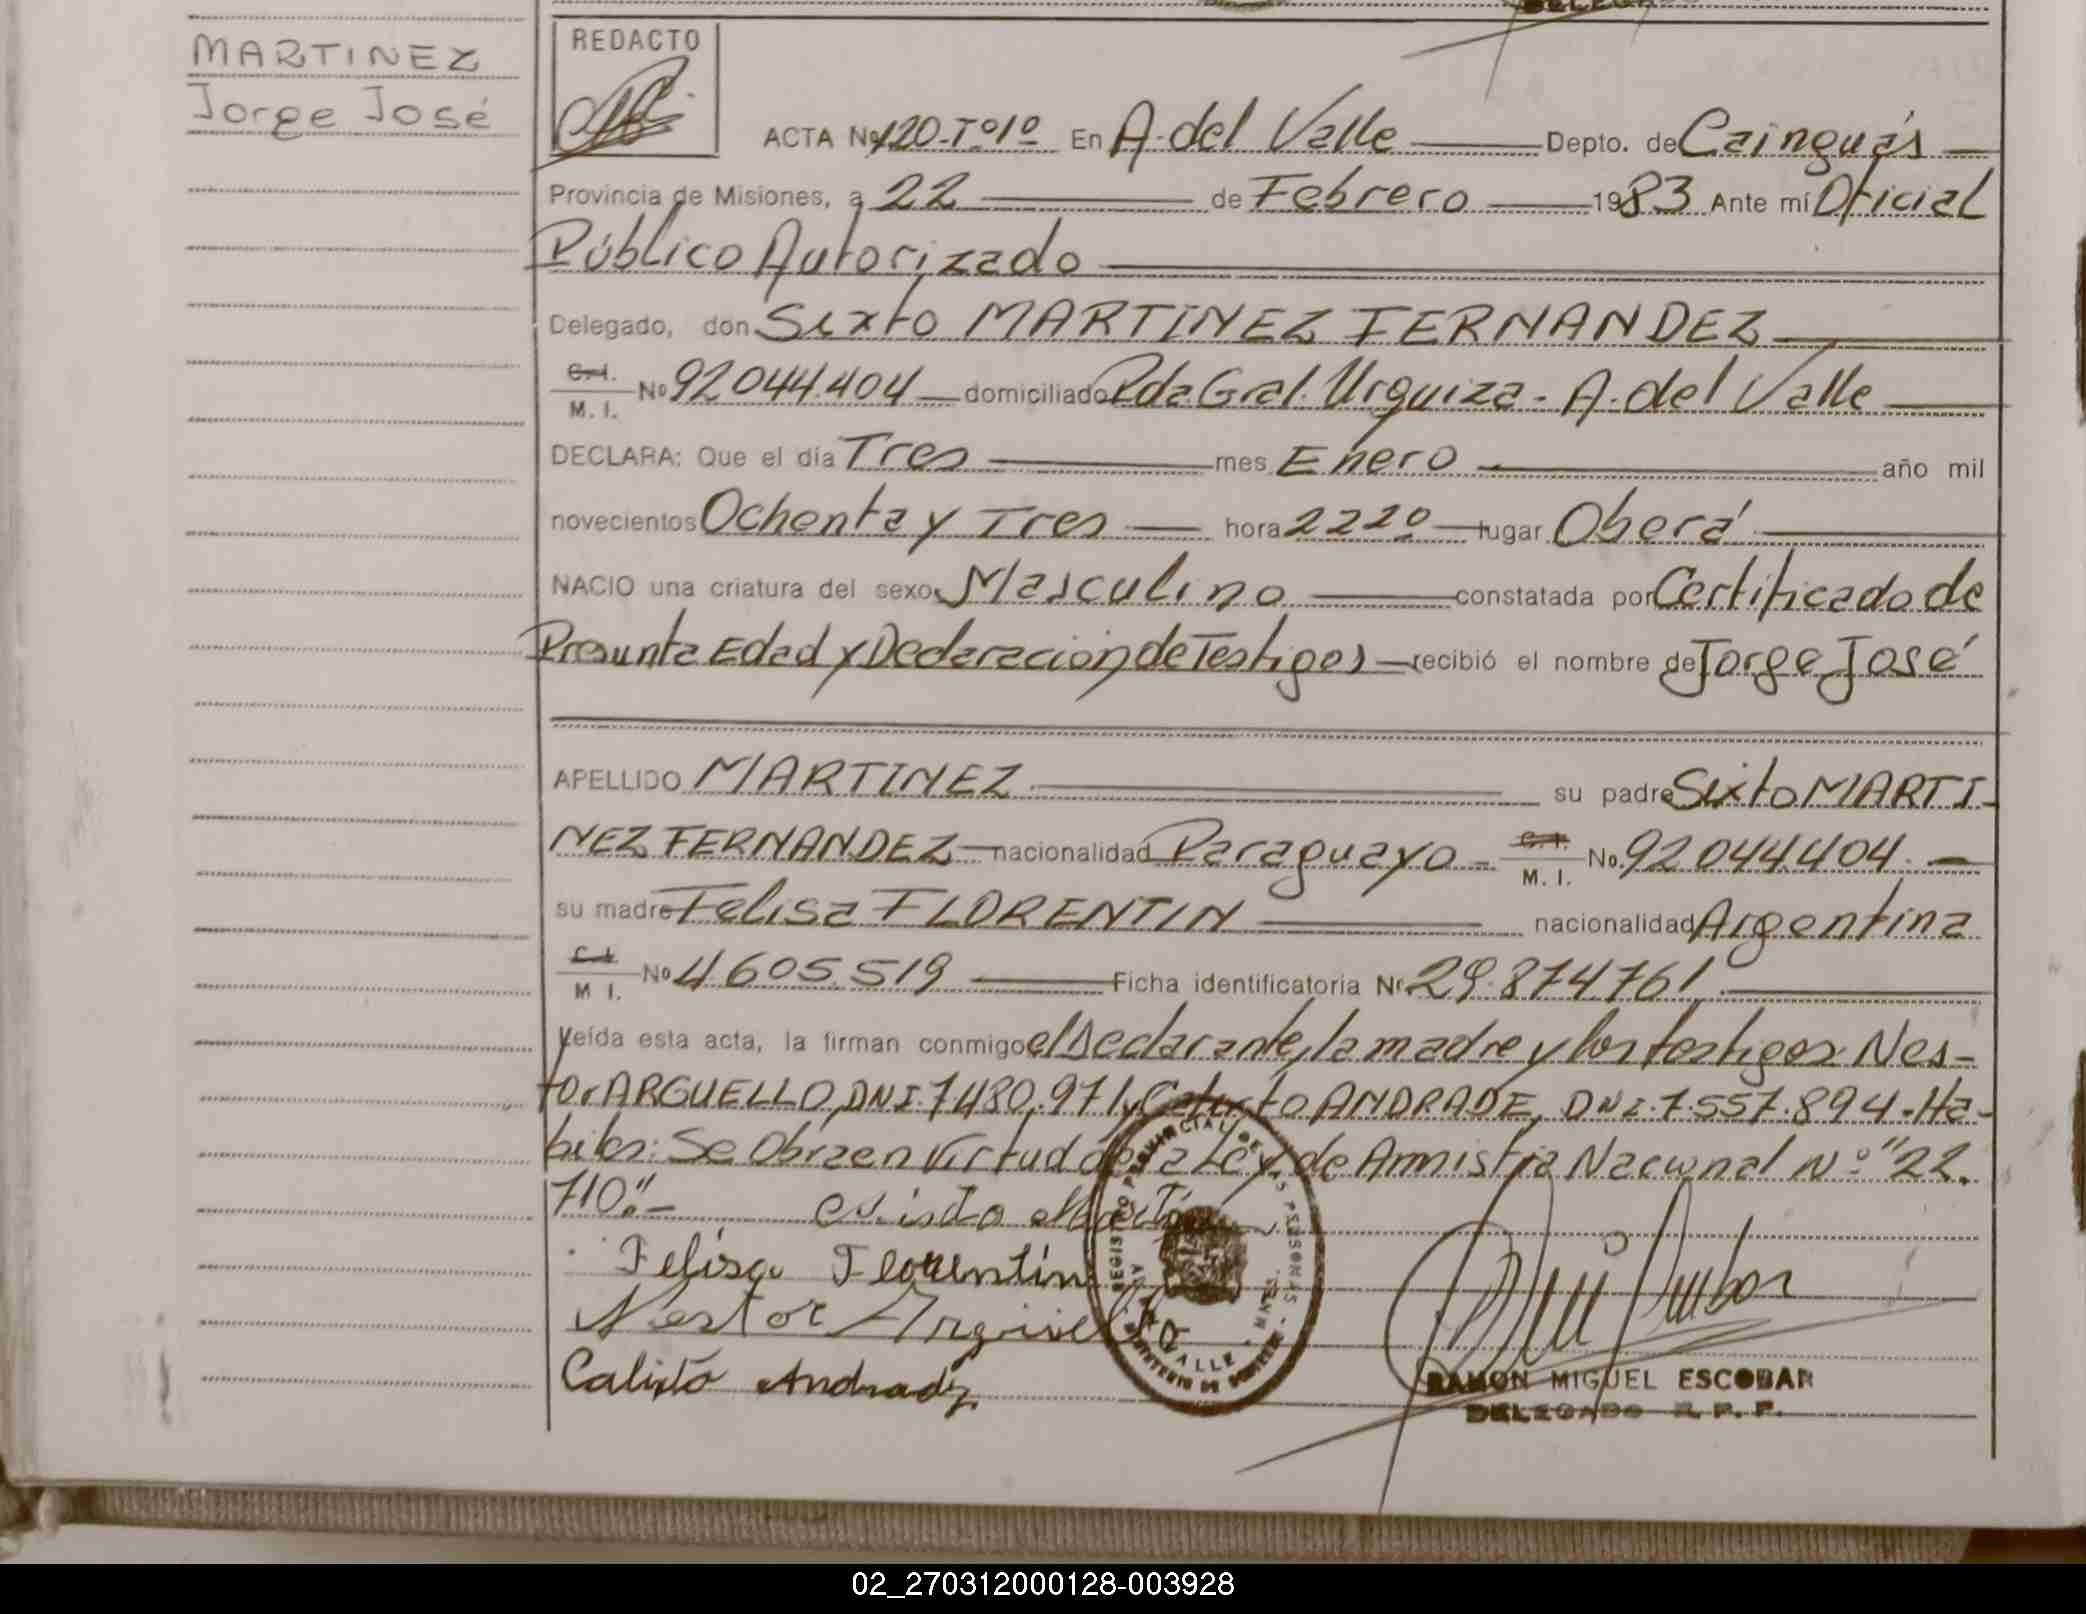 MARTINEZ
Jorge José
REDACTO
ACTA Nº 120-Tº1º En A. del Valle Depto. de Cainguás
Provincia de Misiones, a 22 de Febrero 1983 Ante mí Oficial
Público Autorizado
Delegado, don Sixto MARTINEZ FERNANDEZ
C.I.
M. I. Nº 92.044.404 domiciliado Pda Gral. Urquiza - A. del Valle
DECLARA: Que el día Tres mes Enero año mil
novecientos Ochenta y Tres hora 22 20 lugar Oberá
NACIO una criatura del sexo Masculino constatada por Certificado de
Presunta Edad y Declaración de Testigos recibió el nombre de Jorge José
APELLIDO MARTINEZ su padre Sixto MARTI-
NEZ FERNANDEZ nacionalidad Paraguayo - C.I. M. I. No. 92.044.404. -
su madre Felisa FLORENTIN nacionalidad Argentina
C.I.
M I. Nº 4.605.519 Ficha identificatoria Nº 29.874.761
Leída esta acta, la firman conmigo el declarante, la madre y los testigos: Nes-
tor ARGUELLO, DNI. 7.480.971 y Calixto ANDRADE, DNI. 7.557.894 - Há-
biles: Se Obra en Virtud de la Ley de Amnistía Nacional Nº "22.
710".-
Felisa Florentín
Nestor Arguello
Calixto Andrade
REGISTRO PROVINCIAL DE LAS PERSONAS
VALLE
MINISTERIO DE GOBIERNO
RAMON MIGUEL ESCOBAR
DELEGADO R. P. P.
02_270312000128-003928